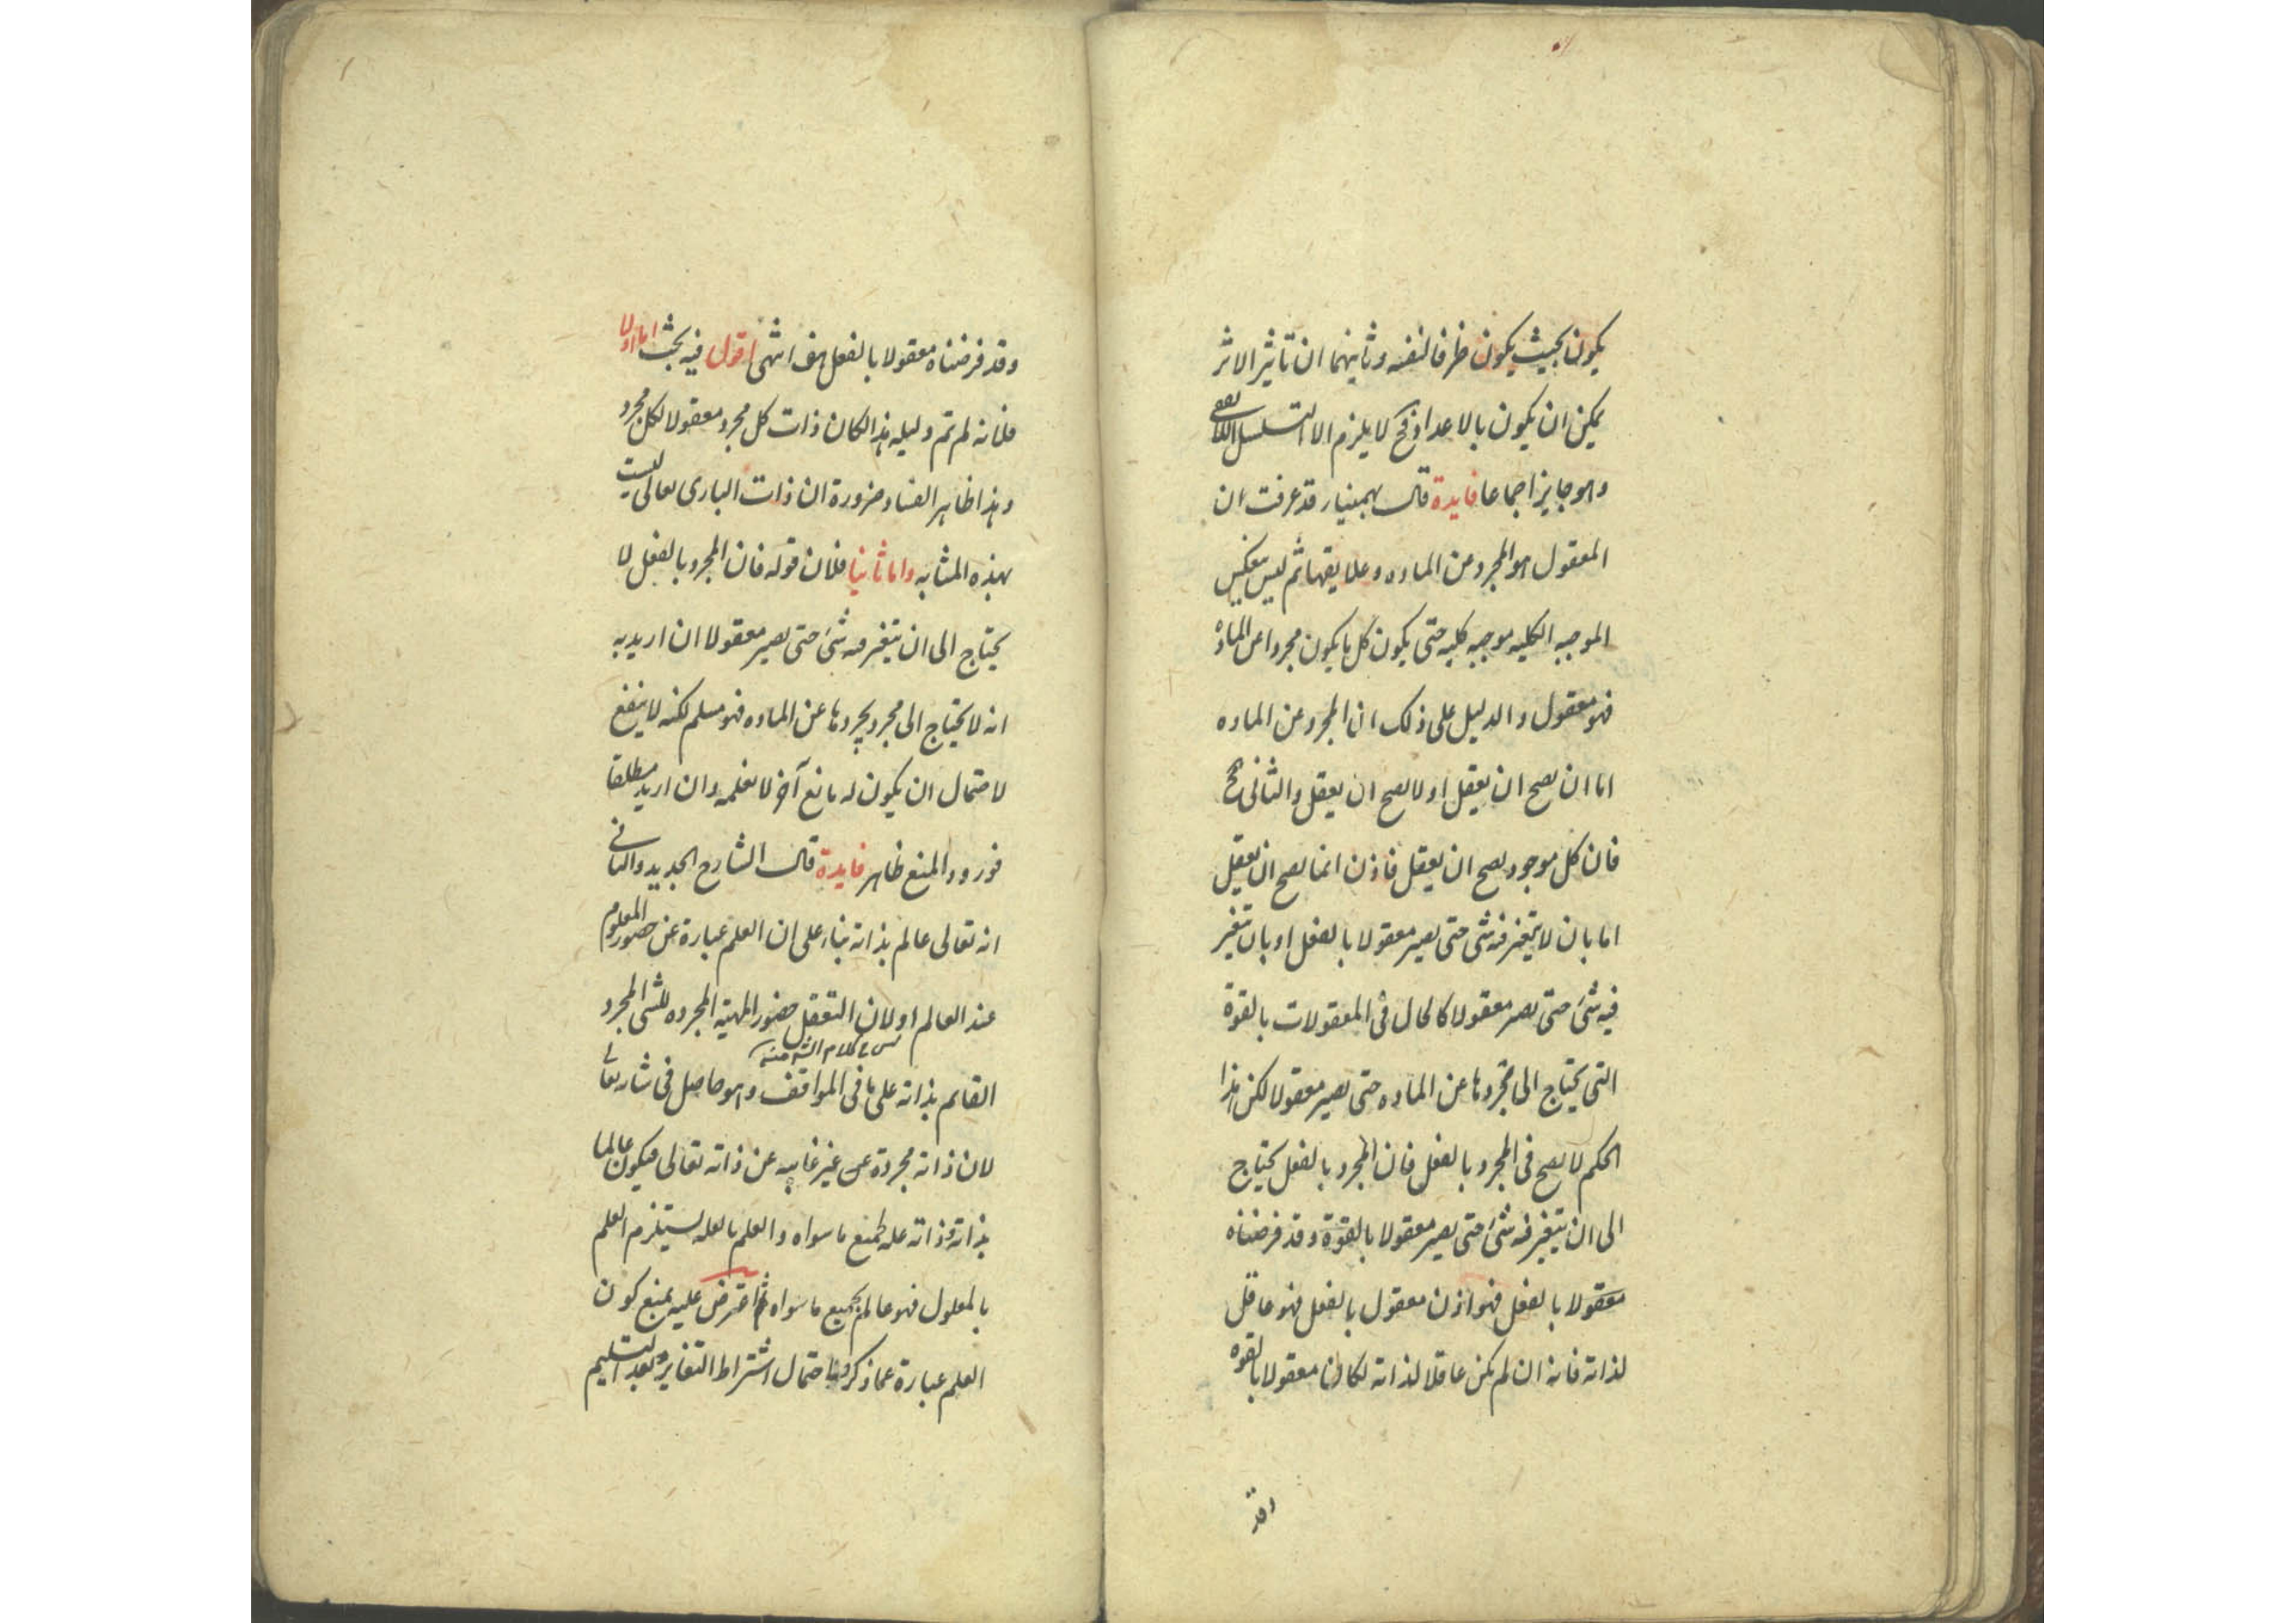 يكون بحيث يكون ظرفا لنفسه وثانيهما ان تاثير الاثر
يمكن ان يكون بالاعداد فح لا يلزم الا التسلسل التعاقبى
وهو جايز اجماعا فايدة قال بهمنيار قد عرفت ان
المعقول هو المجرد عن الماده وعلايقها ثم ليس ينعكس
الموجبه الكليه موجبه كليه حتى يكون كل ما يكون مجردا عن المادة
فهو معقول والدليل على ذلك ان المجرد عن الماده
اما ان يصح ان يعقل او لا يصح ان يعقل والثانى مح
فان كل موجود يصح ان يعقل فاذن انما يصح ان يعقل
اما بان لا يتغير فيه شئ حتى يصير معقولا بالفعل او بان يتغير
فيه شئ حتى يصير معقولا كالحال فى المعقولات بالقوة
التى يحتاج الى مجرد يجردها عن الماده حتى يصير معقولا لكن هذا
الحكم لا يصح فى المجرد بالفعل فان المجرد بالفعل يحتاج
الى ان يتغير فيه شئ حتى يصير معقولا بالقوة وقد فرضناه
معقولا بالفعل فهو اذن معقول بالفعل فهو عاقل
لذاته فانه ان لم يكن عاقلا لذاته لكان معقولا بالقوه
وقد
وقد فرضناه معقولا بالفعل هف انتهى اقول فيه بحث اما اولا
فلانه لو تم دليله هذا لكان ذات كل مجرد معقولا لكل مجرد
وهذا ظاهر الفساد ضرورة ان ذات البارى تعالى ليست
بهذه المثابه واما ثانيا فلان قوله فان المجرد بالفعل لا
يحتاج الى ان يتغير فيه شئ حتى يصير معقولا ان اريد به
انه لا يحتاج الى مجرد يجردها عن الماده فهو مسلم لكنه لا ينفع
لاحتمال ان يكون له مانع آخر لا نعلمه وان اريد مطلقا
فورود المنع ظاهر فايدة قال الشارح الجديد والثانى
انه تعالى عالم بذاته بناء على ان العلم عبارة عن حضور المعلوم
عند العالم او لان التعقل حضور المهية المجرده للشئ المجرد
القائم بذاته على ما فى المواقف وهو حاصل فى شانه تعالى
لان ذاته مجردة غير غايبه عن ذاته تعالى فيكون عالما
بذاته وذاته عله لجميع ما سواه والعلم بالعله يستلزم العلم
بالمعلول فهو عالم بجميع ما سواه ثم اعترض عليه بمنع كون
العلم عبارة عما ذكر وباحتمال اشتراط التغاير وبعد التسليم